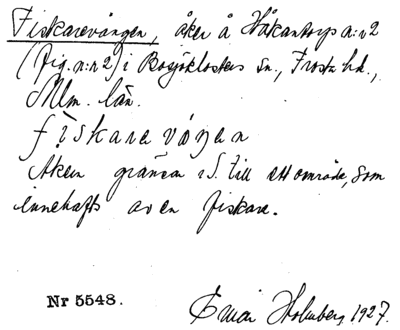 Fiskarevången, åker å Håkantorp n:r 2
(fig. n:r 2) i Bosjöklosters sn., Frosta hd.,
Mlm. län.
fiskarevången
Åkern gränsar i S. till ett område, som
innehafts av en fiskare.
Nr 5548.
Holmberg 1927.